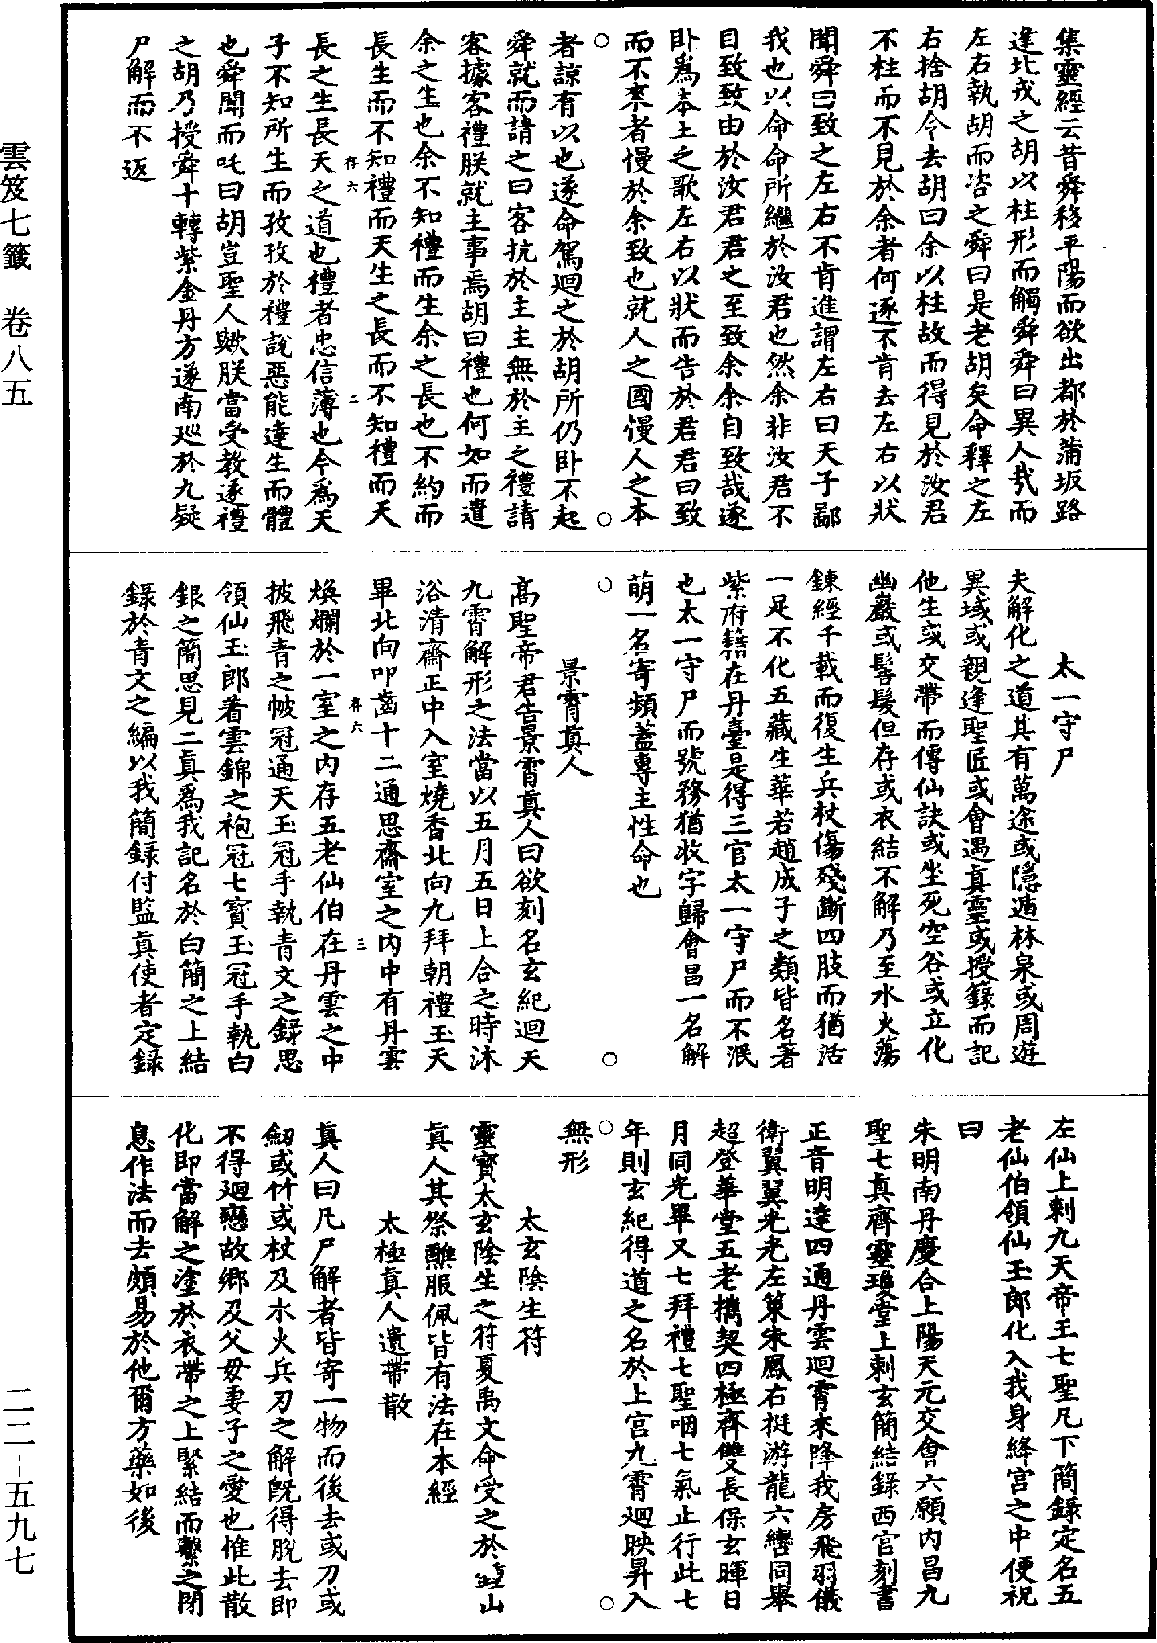 集靈經云昔舜移平陽而欲出都於蒲坂路
逢北戎之胡以柱形而觸舜舜曰異人哉而
左右執胡而咨之舜曰是老胡矣命釋之左
右捨胡令去胡曰余以柱故而得見於汝君
不柱而不見於余者何遂不肯去左右以狀
聞舜曰致之左右不肯進謂左右曰天子鄙
我也以命命所繼於汝君也然余非汝君不
自致致由於汝君君之至致余余自致哉遂
卧爲本土之歌左右以狀而告於君君曰致
而不來者慢於余致也就人之國慢人之本
者諒有以也遂命駕迴之於胡所仍卧不起
舜就而請之曰客抗於主主無於主之禮請
客據客禮朕就主事焉胡曰禮也何如而遣
余之生也余不知禮而生余之長也不約而
長生而不知禮而天生之長而不知禮而天
存六 二
長之生長天之道也禮者忠信薄也今爲天
子不知所生而孜孜於禮說惡能達生而體
也舜聞而吒曰胡豈聖人歟朕當受教逐禮
之胡乃授舜十轉紫金丹方遂南巡於九疑
尸解而不返
太一守尸
夫解化之道其有萬途或隱遁林泉或周遊
異域或親逢聖匠或會遇真靈或授籙而記
他生或交帶而傳仙訣或坐死空谷或立化
幽巖或髻髮但存或衣結不解乃至水火蕩
鍊經千載而復生兵杖傷殘斷四肢而猶活
一足不化五藏生華若趙成子之類皆名著
紫府籍在丹臺是得三官太一守尸而不泯
也太一守尸而號務猶收字歸會昌一名解
萌一名寄頻蓋專主性命也
景霄真人
高聖帝君告景霄真人曰欲刻名玄紀迴天
九霄解形之法當以五月五日上合之時沐
浴清齋正中入室燒香北向九拜朝禮玉天
畢北向叩齒十二通思齋室之內中有丹雲
存六 三
煥爛於一室之內存五老仙伯在丹雲之中
披飛青之帔冠通天玉冠手執青文之録思
領仙玉郎著雲錦之袍冠七寶玉冠手執白
銀之簡思見二真爲我記名於白簡之上結
錄於青文之編以我簡錄付監真使者定録
左仙上刺九天帝王七聖凡下簡録定名五
老仙伯領仙玉郎化入我身絳宮之中便祝
曰
朱明南丹慶合上陽天元交會六願內昌九
聖七真齊靈瓊堂上刺玄簡結録西官刻書
正音明達四通丹雲迴霄來降我房飛羽儀
衛翼翼光光左策朱鳳右挺游龍六轡同舉
超登華堂五老攜契四極齊雙長保玄暉日
月同光畢又七拜禮七聖咽七氣止行此七
年則玄紀得道之名於上宮九霄迴映昇入
無形
太玄陰生符
靈寶太玄陰生之符夏禹文命受之於鍾山
真人其祭醮服佩皆有法在本經
太極真人遺帶散
真人曰凡尸解者皆寄一物而後去或刀或
劒或竹或杖及水火兵刃之解既得脫去即
不得迴戀故鄉及父母妻子之愛也惟此散
化即當解之塗於衣帶之上緊結而繫之閉
息作法而去頗易於他爾方藥如後
雲笈七籤 卷八五
二二-五九七